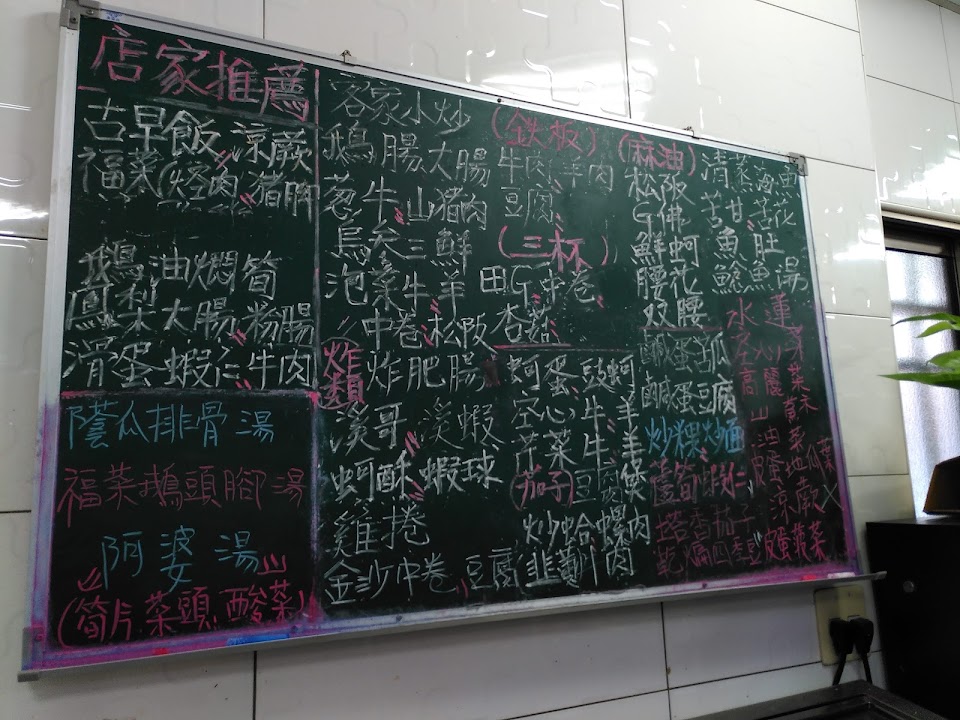 店家推薦
古早飯 涼蕨
福菜(焢肉 豬腳
鵝油燜筍
鳳梨大腸 粉腸
滑蛋蝦仁 牛肉
蔭瓜排骨湯
福菜鵝頭腳湯
阿婆湯
(筍片.菜頭.酸菜)
客家小炒
鵝腸大腸
葱牛 山豬肉
三鮮
泡菜牛羊
中卷 松阪
炸類
炸肥腸
溪哥 溪蝦
蚵酥 蝦球
雞捲
金沙中卷 豆腐
(鉄板)
牛肉羊肉
豆腐
(三杯)
田G中卷
杏菇
蚵蛋 豉蚵
空心牛羊
芹菜牛羊
(茄子)
炒蛤螺肉
(麻油)
松阪
G佛
鮮蚵
腰花
双腰
鹹蛋
鹹蛋豆腐
炒粿炒麵
清蒸
苦甘 苦花
魚肚
鯰魚湯
水蓮
高麗菜
皮蛋地瓜葉
涼蕨
塔香茄子
乾煸四季豆
皮蛋菠菜